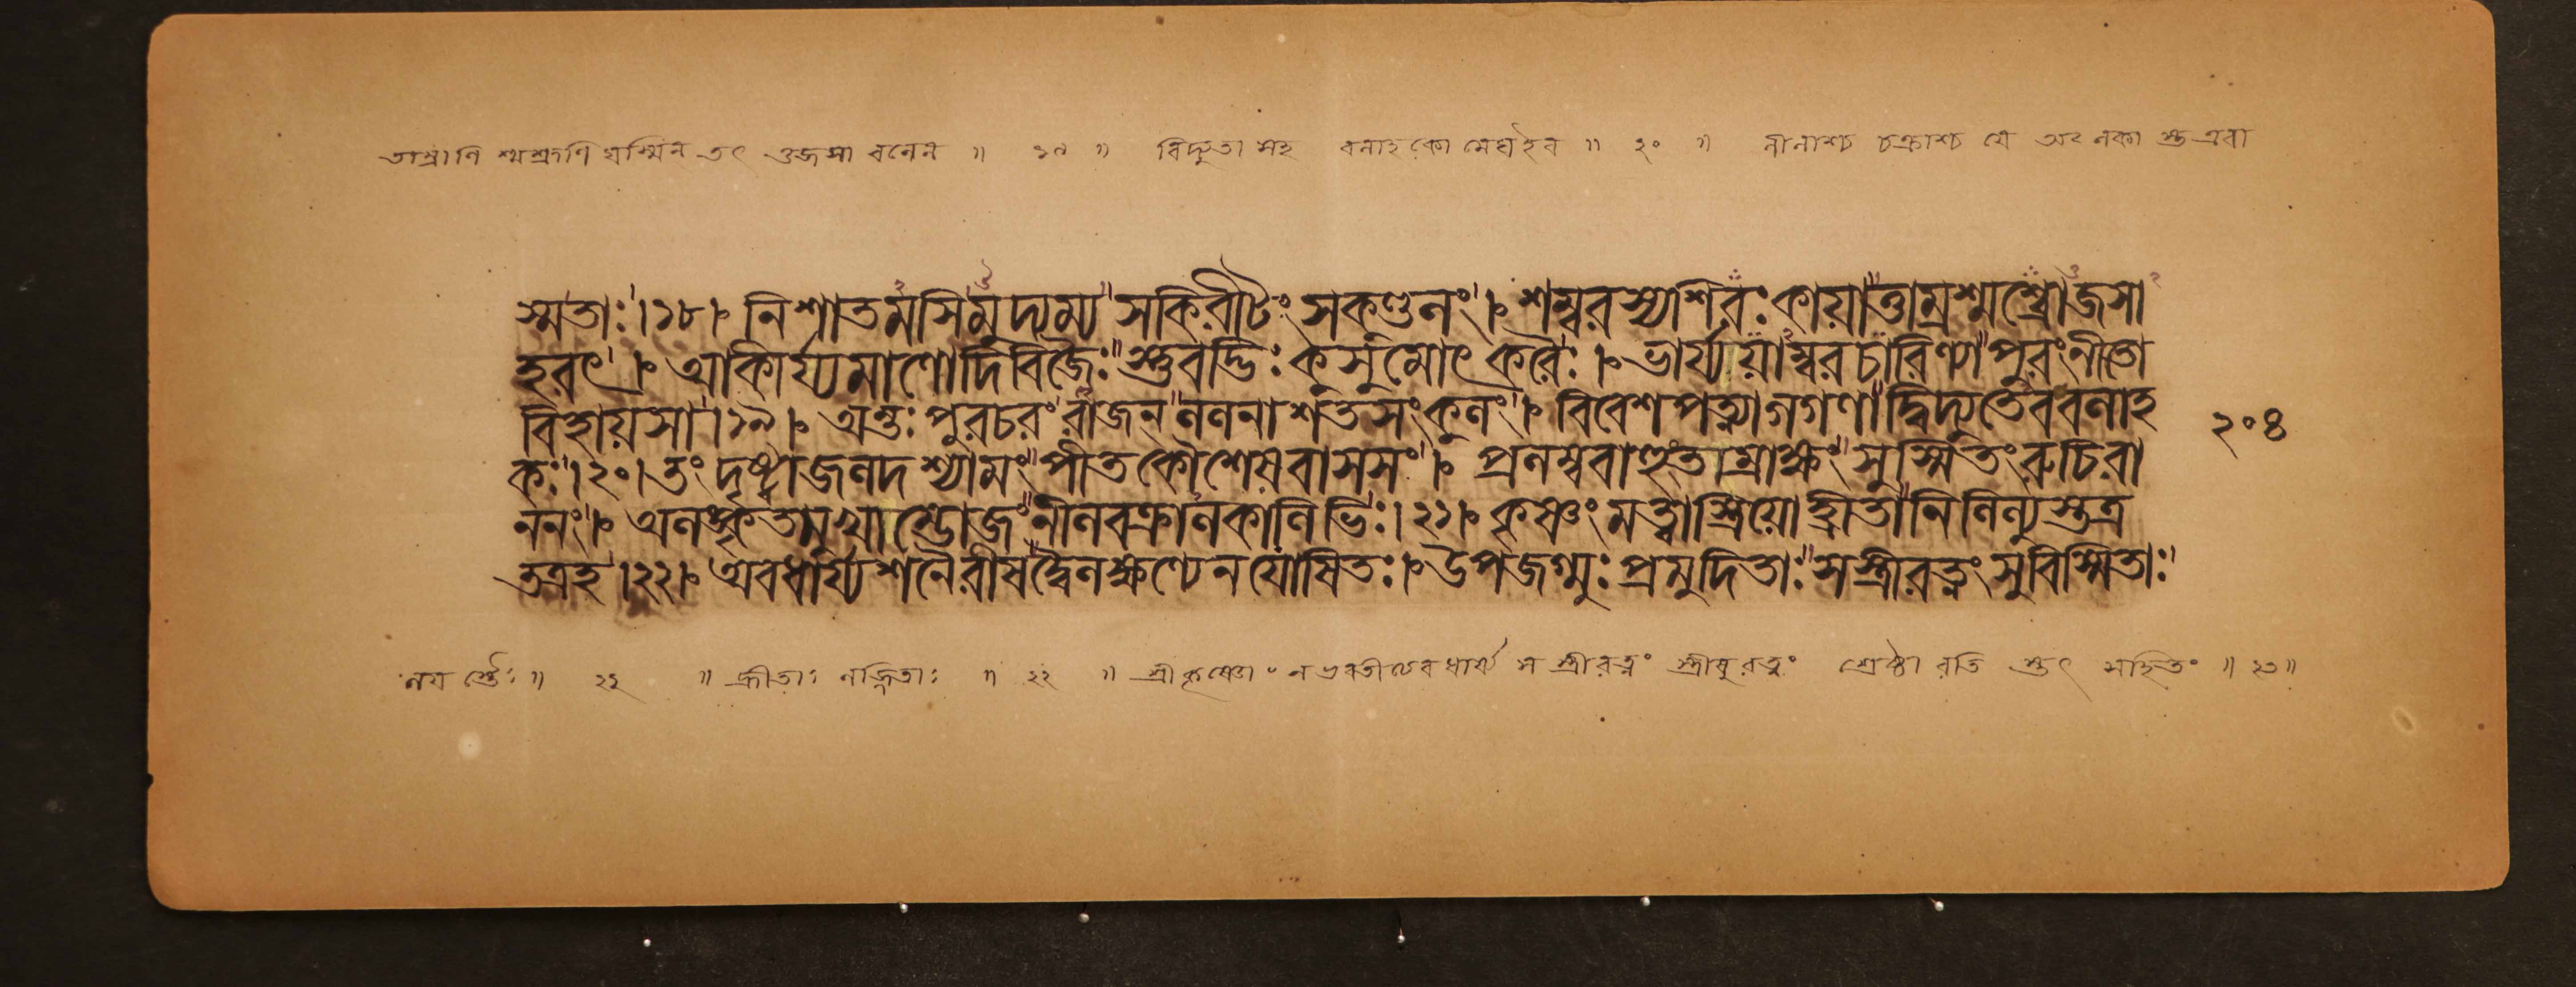 তাম্রানি শ্মশ্রুণি যস্মিন তৎ ওজসা বলেন ॥ ১৯ ॥ বিদ্যুতা সহ বলাহকো মেঘইব ॥ ২০ ॥ নীলাশ্চ চক্রাশ্চ যে অলকা স্ত এবা
স্মৃতাঃ।১৮। নিশাতমসিমুদ্যম্য সকিরীটং সকুণ্ডলং। শম্বরস্যশিরঃকায়াত্তাম্রশ্মশ্র্বোজসা
হরৎ। আকীর্য্যমাণোদিবিজৈঃস্তুবদ্ভিঃকুসুমোৎকরৈঃ। ভার্য্যয়াম্বরচারিণ্যাপুরংনীতো
বিহায়সা।১৯। অন্তঃপুরচরংরাজন্ ললনাশতসংকুলং। বিবেশপত্ন্যাগগণাদ্বিদ্যুতেববলাহ
কঃ।২০।তংদৃষ্ট্বাজলদশ্যামংপীতকৌশেয়বাসসং। প্রলম্ববাহুংতাম্রাক্ষংসুস্মিতংরুচিরা
ননং। অলঙ্কৃতমুখাম্ভোজংনীলবক্রালকালিভিঃ।২১। কৃষ্ণংমত্ত্বাস্ত্রিয়োহ্রীতানিলিল্যুস্তত্র
তত্রহ।২২। অবধার্য্যশনৈরীষদ্বৈলক্ষণ্যেনযোষিতঃ। উপজগ্মুঃপ্রমুদিতাঃসস্ত্রীরত্নংসুবিস্মিতাঃ
২০৪
লয় স্তৈঃ ॥ ২১ ॥ হ্রীতাঃ লজ্জিতাঃ ॥ ২২ ॥ শ্রীকৃষ্ণো ন ভবতীত্যেবধার্য্য স স্ত্রীরত্নং স্ত্রীষুরত্নং শ্রেষ্ঠা রতি স্তৎ সহিতং ॥ ২৩॥